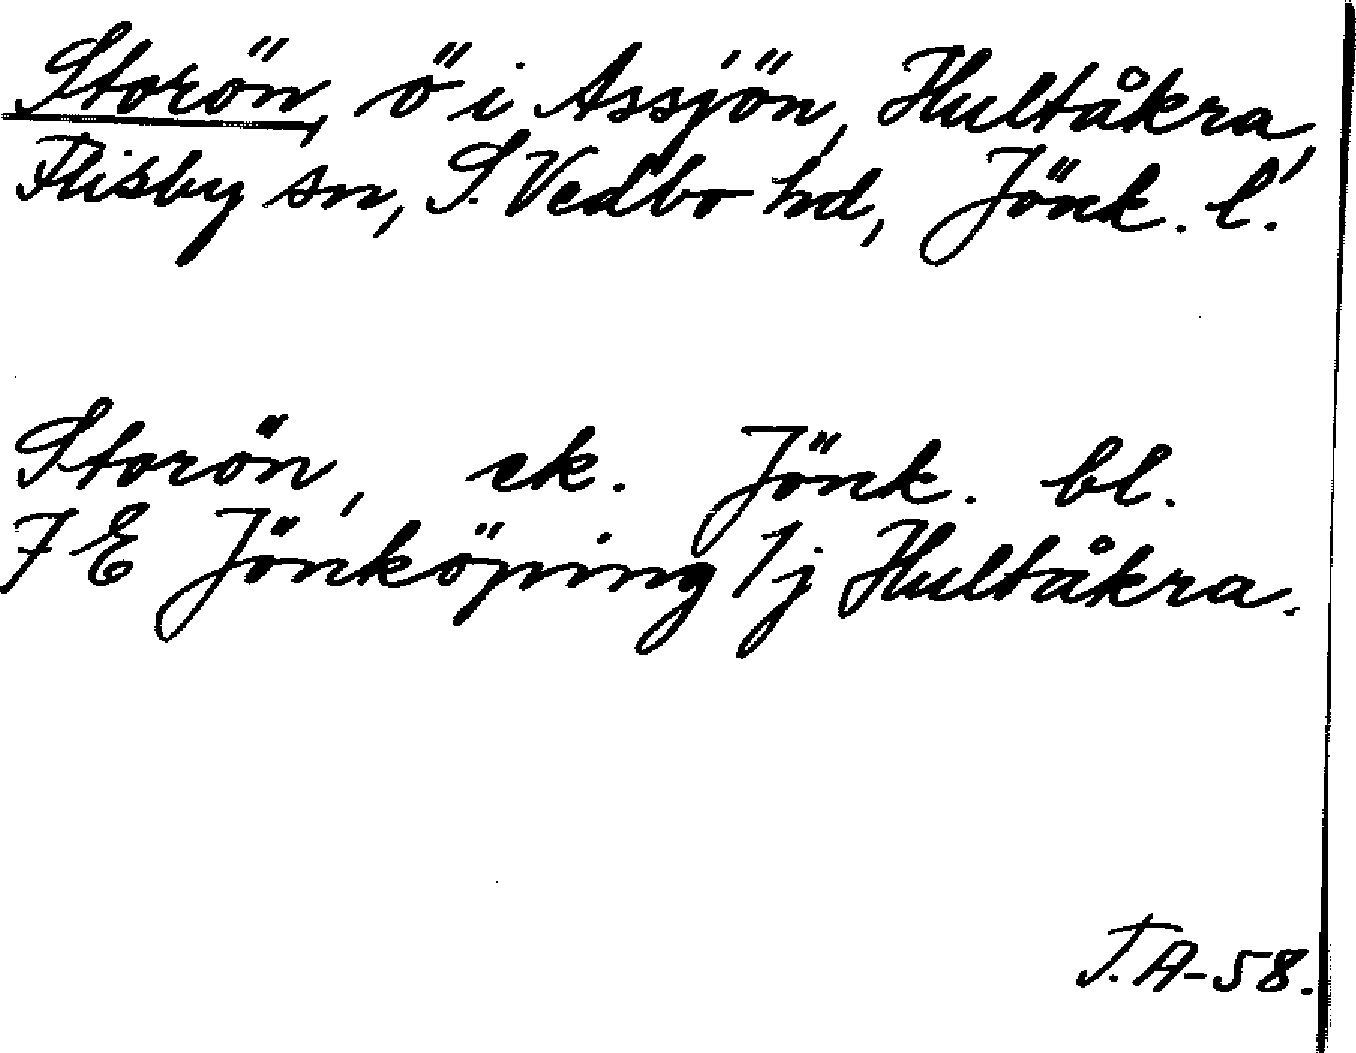 Storön, ö i Assjön, Hultåkra,
Flisby sn, S. Vedbo hd, Jönk. l.
Storön, ek. Jönk. bl.
J E Jönköping 1j Hultåkra.
T.A-58.